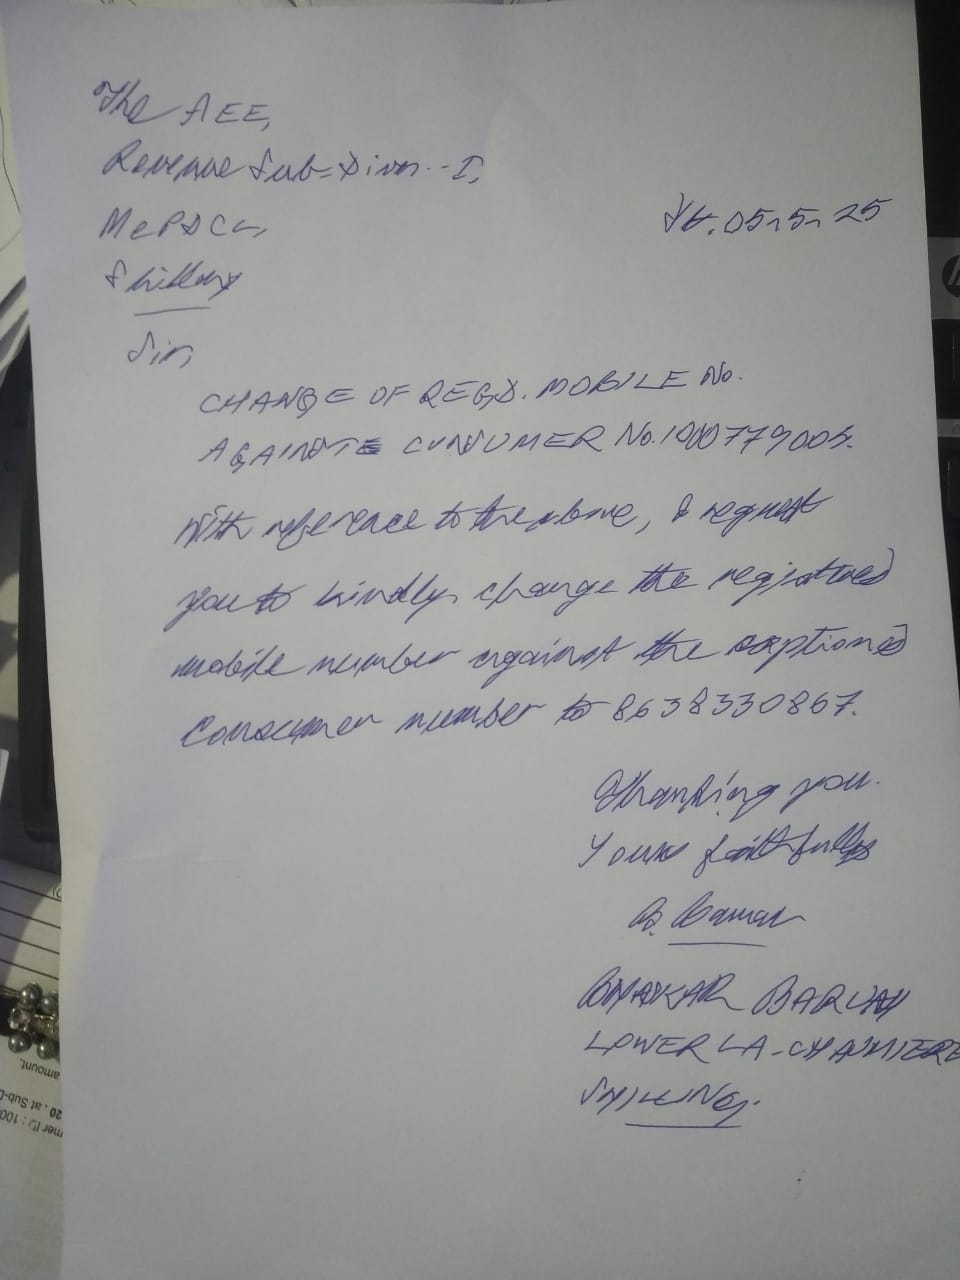 The AEE,
Revenue Sub-Divn.-I,
MePDCL,
Shillong
Dt. 05.5.25
Sir,
CHANGE OF REGD. MOBILE No.
AGAINST CONSUMER No.
With reference to the above, I request
you to kindly change the registered
mobile number against the captioned
Consumer number to 8638330867.
Thanking you.
Yours faithfully
BARUAH
LOWER LA-CHAUMIERE
SHILLONG.
amount.
20. at Sub-D
mer ID : 100